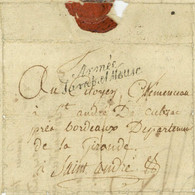 Armée
Au Citoyen Clemenceau
à St andré De Cubzac
près bordeaux Departement
de la Gironde
a Saint andré